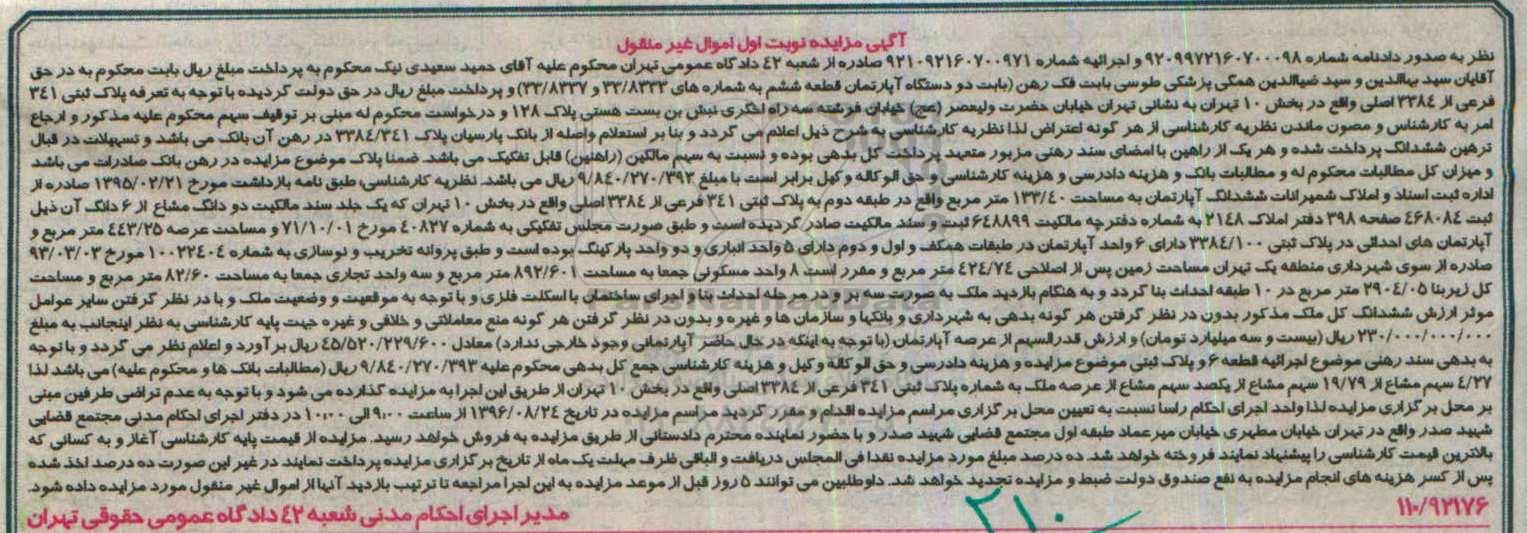 آگهی مزایده نوبت اول اموال غیر منقول
نظر به صدور دادنامه شماره ۹۲۰۹۹۷۲۱۶۰۷۰۰۰۹۸ و اجرائیه شماره ۹۲۱۰۹۲۱۶۰۷۰۰۹۷۱ صادره از شعبه ۴۲ دادگاه عمومی تهران محکوم علیه آقای حمید سعیدی نیک محکوم به پرداخت مبلغ ریال بابت محکوم به در حق
آقایان سید بهاالدین و سید ضیاالدین همگی پزشکی طوسی بابت فک رهن (بابت دو دستگاه آپارتمان قطعه ششم به شماره های ۳۳/۸۳۳۳ و ۳۳/۸۳۳۷) و پرداخت مبلغ ریال در حق دولت گردیده با توجه به تعرفه پلاک ثبتی ۳۴۱
فرعی از ۳۳۸۴ اصلی واقع در بخش ۱۰ تهران به نشانی تهران خیابان حضرت ولیعصر (عج) خیابان فرشته سه راه اخگری نبش بن بست هستی پلاک ۱۲۸ و درخواست محکوم له مبنی بر توقیف سهم محکوم علیه مذکور و ارجاع
امر به کارشناس و مصون ماندن نظریه کارشناسی از هر گونه اعتراض لذا نظریه کارشناسی به شرح ذیل اعلام می گردد و بنا بر استعلام واصله از بانک پارسیان پلاک ۳۳۸۴/۳۴۱ در رهن آن بانک می باشد و تسهیلات در قبال
ترهین ششدانگ پرداخت شده و هر یک از راهین با امضای سند رهنی مزبور متعهد پرداخت کل بدهی بوده و نسبت به سهم مالکین (راهنین) قابل تفکیک می باشد. ضمنا پلاک موضوع مزایده در رهن بانک صادرات می باشد
و میزان کل مطالبات محکوم له و مطالبات بانک و هزینه دادرسی و هزینه کارشناسی و حق الوکاله وکیل برابر است با مبلغ ۹/۸۴۰/۲۷۰/۳۹۳ ریال می باشد. نظریه کارشناسی: طبق نامه بازداشت مورخ ۱۳۹۵/۰۲/۲۱ صادره از
اداره ثبت اسناد و املاک شمیرانات ششدانگ آپارتمان به مساحت ۱۳۳/۴۰ متر مربع واقع در طبقه دوم به پلاک ثبتی ۳۴۱ فرعی از ۳۳۸۴ اصلی واقع در بخش ۱۰ تهران که یک جلد سند مالکیت دو دانگ مشاع از ۶ دانگ آن ذیل
ثبت ۴۶۸۰۸۴ صفحه ۳۹۸ دفتر املاک ۲۱۴۸ به شماره دفترچه مالکیت ۶۴۸۸۹۹ ثبت و سند مالکیت صادر گردیده است و طبق صورت مجلس تفکیکی به شماره ۴۰۸۲۷ مورخ ۷۱/۱۰/۰۱ و مساحت عرصه ۴۴۳/۲۵ متر مربع و
آپارتمان های احداثی در پلاک ثبتی ۳۳۸۴/۱۰۰ دارای ۶ واحد آپارتمان در طبقات همکف و اول و دوم دارای ۵ واحد انباری و دو واحد پارکینگ بوده است و طبق پروانه تخریب و نوسازی به شماره ۱۰۰۲۲۴۰۴ مورخ ۹۳/۰۳/۰۳
صادره از سوی شهرداری منطقه یک تهران مساحت زمین پس از اصلاحی ۴۲۴/۷۴ متر مربع و مقرر است ۸ واحد مسکونی جمعا به مساحت ۸۹۲/۶۰۱ متر مربع و سه واحد تجاری جمعا به مساحت ۸۲/۶۰ متر مربع و مساحت
کل زیربنا ۲۹۰۴/۰۵ متر مربع در ۱۰ طبقه احداث بنا گردد و به هنگام بازدید ملک به صورت سه بر و در مرحله احداث بنا و اجرای ساختمان با اسکلت فلزی و با توجه به موقعیت و وضعیت ملک و با در نظر گرفتن سایر عوامل
موثر ارزش ششدانگ کل ملک مذکور بدون در نظر گرفتن هر گونه بدهی به شهرداری و بانکها و سازمان ها و غیره و بدون در نظر گرفتن هر گونه منع معاملاتی و خلافی و غیره جهت پایه کارشناسی به نظر اینجانب به مبلغ
۲۳۰/۰۰۰/۰۰۰/۰۰۰ ریال (بیست و سه میلیارد تومان) و ارزش قدرالسهم از عرصه آپارتمان (با توجه به اینکه در حال حاضر آپارتمانی وجود خارجی ندارد) معادل ۴۵/۵۲۰/۲۲۹/۶۰۰ ریال برآورد و اعلام نظر می گردد و با توجه
به بدهی سند رهنی موضوع اجرائیه قطعه ۶ و پلاک ثبتی موضوع مزایده و هزینه دادرسی و حق الوکاله وکیل و هزینه کارشناسی جمع کل بدهی محکوم علیه ۹/۸۴۰/۲۷۰/۳۹۳ ریال (مطالبات بانک ها و محکوم علیه) می باشد لذا
۴/۲۷ سهم مشاع از ۱۹/۷۹ سهم مشاع از یکصد سهم مشاع از عرصه ملک به شماره پلاک ثبتی ۳۴۱ فرعی از ۳۳۸۴ اصلی واقع در بخش ۱۰ تهران از طریق این اجرا به مزایده گذارده می شود و با توجه به عدم تراضی طرفین مبنی
بر محل برگزاری مزایده لذا واحد اجرای احکام راسا نسبت به تعیین محل برگزاری مراسم مزایده اقدام و مقرر گردید مراسم مزایده در تاریخ ۱۳۹۶/۰۸/۲۴ از ساعت ۹:۰۰ الی ۱۰:۰۰ در دفتر اجرای احکام مدنی مجتمع قضایی
شهید صدر واقع در تهران خیابان مطهری خیابان میرعماد طبقه اول مجتمع قضایی شهید صدر و با حضور نماینده محترم دادستانی از طریق مزایده به فروش خواهد رسید. مزایده از قیمت پایه کارشناسی آغاز و به کسانی که
بالاترین قیمت کارشناسی را پیشنهاد نمایند فروخته خواهد شد. ده درصد مبلغ مورد مزایده نقدا فی المجلس دریافت و الباقی ظرف مهلت یک ماه از تاریخ برگزاری مزایده پرداخت نمایند در غیر این صورت ده درصد اخذ شده
پس از کسر هزینه های انجام مزایده به نفع صندوق دولت ضبط و مزایده تجدید خواهد شد. داوطلبین می توانند ۵ روز قبل از موعد مزایده به این اجرا مراجعه تا ترتیب بازدید آنها از اموال غیر منقول مورد مزایده داده شود.
۱۱۰/۹۲۱۷۶
مدیر اجرای احکام مدنی شعبه ۴۲ دادگاه عمومی حقوقی تهران
۲۱۰